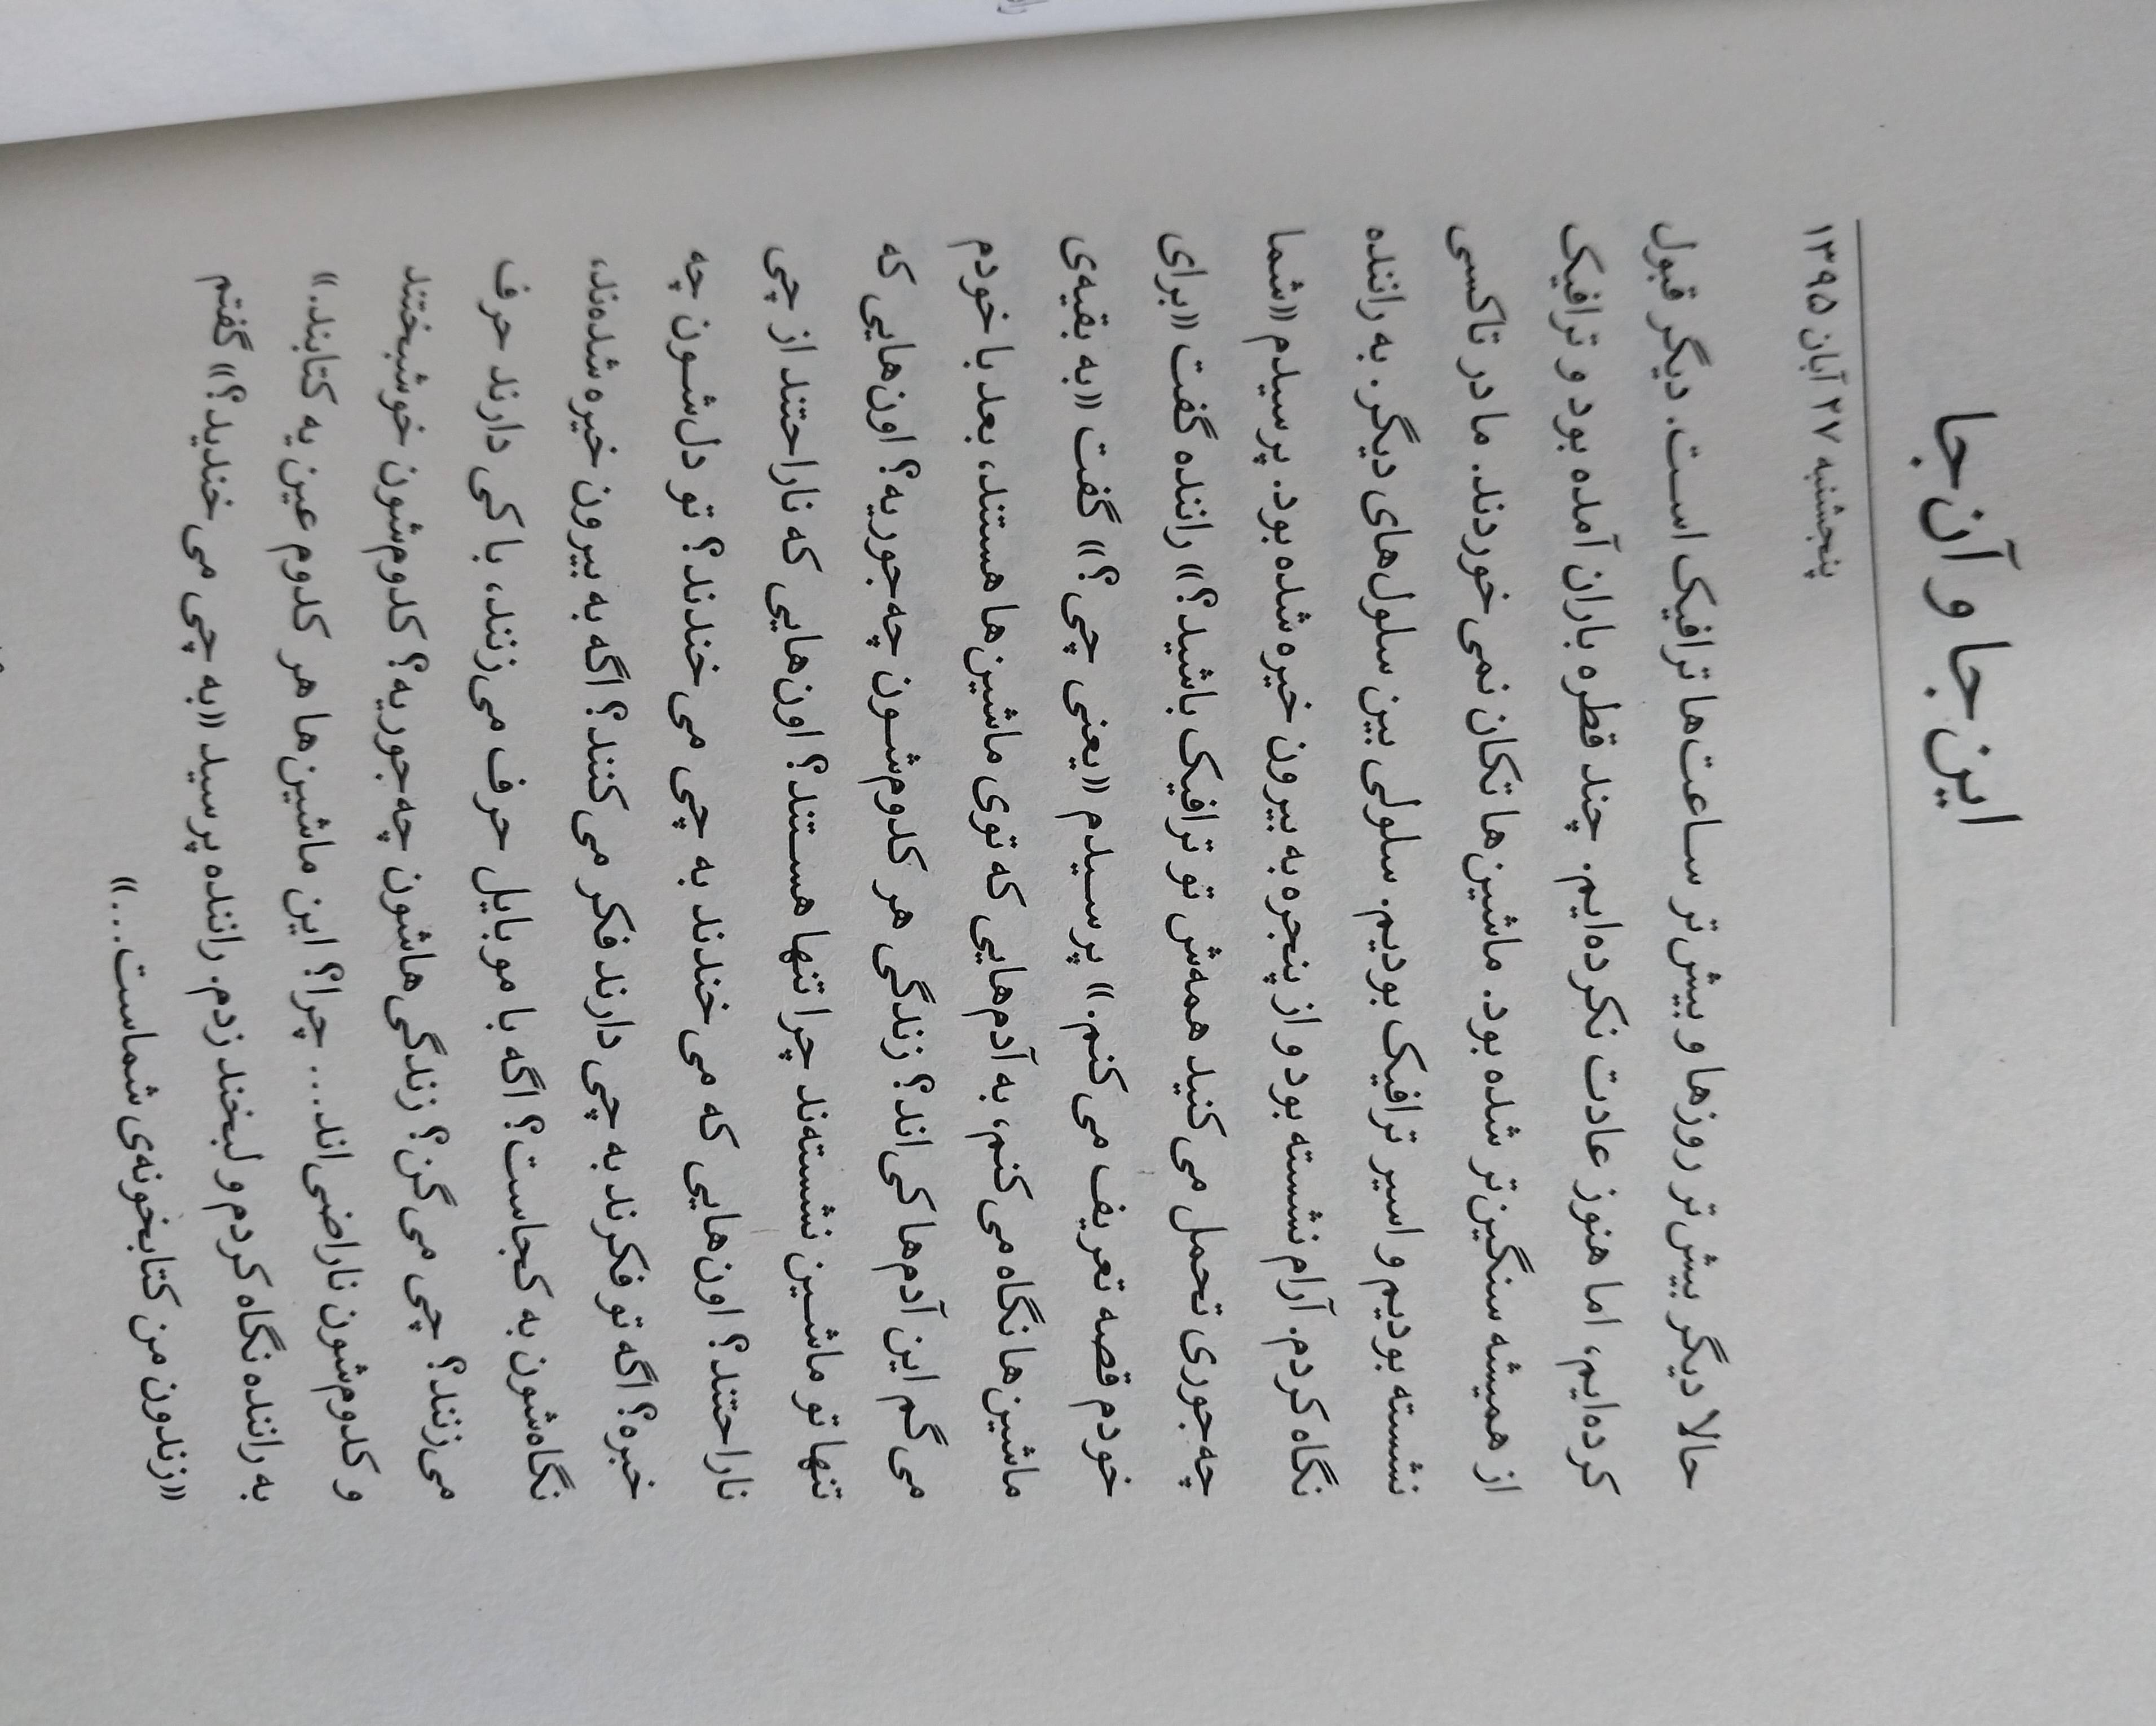 این جا و آن جا
پنجشنبه ۲۷ آبان ۱۳۹۵
حالا دیگر بیش‌تر روزها و بیش‌تر ساعت‌ها ترافیک است. دیگر قبول
کرده‌ایم، اما هنوز عادت نکرده‌ایم. چند قطره باران آمده بود و ترافیک
از همیشه سنگین‌تر شده بود. ماشین‌ها تکان نمی‌خوردند. ما در تاکسی
نشسته بودیم و اسیر ترافیک بودیم. سلولی بین سلول‌های دیگر. به راننده
نگاه کردم. آرام نشسته بود و از پنجره به بیرون خیره شده بود. پرسیدم «شما
چه‌جوری تحمل می‌کنید همه‌ش تو ترافیک باشید؟» راننده گفت «برای
خودم قصه تعریف می‌کنم.» پرسیدم «یعنی چی؟» گفت «به بقیه‌ی
ماشین‌ها نگاه می‌کنم، به آدم‌هایی که توی ماشین‌ها هستند، بعد با خودم
می‌گم این آدم‌ها کی‌اند؟ زندگی هر کدوم‌شون چه‌جوریه؟ اون‌هایی که
تنها تو ماشین نشسته‌ند چرا تنها هستند؟ اون‌هایی که ناراحتند از چی
ناراحتند؟ اون‌هایی که می‌خندند به چی می‌خندند؟ تو دل‌شون چه
خبره؟ اگه تو فکرند به چی دارند فکر می‌کنند؟ اگه به بیرون خیره شده‌ند،
نگاه‌شون به کجاست؟ اگه با موبایل حرف می‌زنند، با کی دارند حرف
می‌زنند؟ چی می‌گن؟ زندگی‌هاشون چه‌جوریه؟ کدوم‌شون خوشبختند
و کدوم‌شون ناراضی‌اند... چرا؟ این ماشین‌ها هر کدوم عین یه کتابند.»
به راننده نگاه کردم و لبخند زدم. راننده پرسید «به چی می‌خندید؟» گفتم
«زندون من کتابخونه‌ی شماست...»